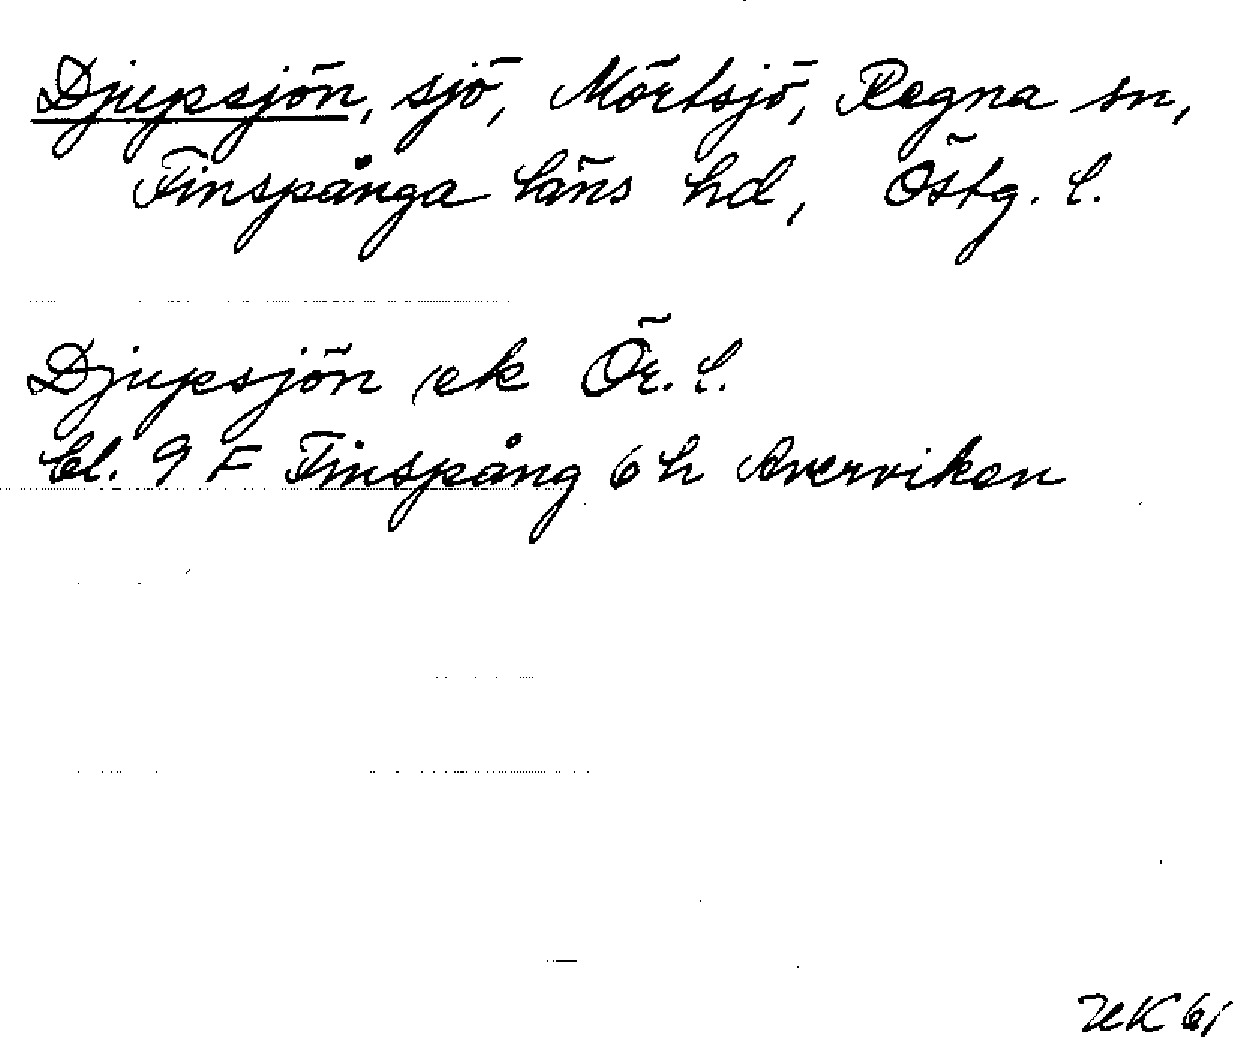 Djupsjön, sjö, Mörtsjö, Regna sn,
Finspånga läns hd, Östg. l.
Djupsjön ek Ör. l.
bl. 9 F Finspång 6 h Averviken